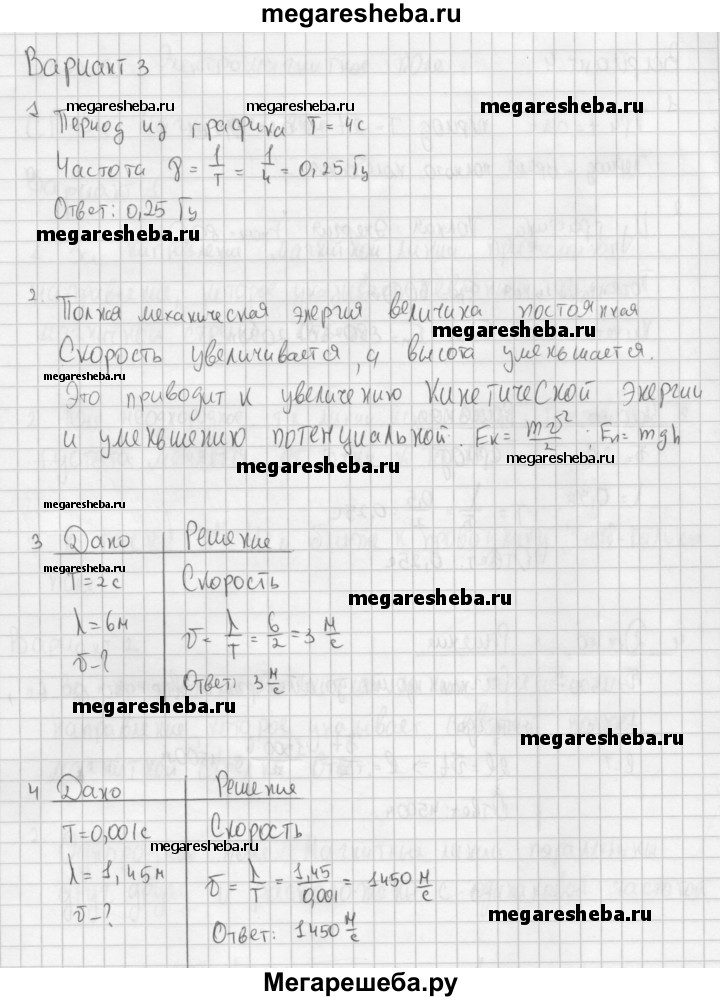 megaresheba.ru
Вариант 3
megaresheba.ru megaresheba.ru megaresheba.ru
1 Период из графика T = 4с
Частота γ = 1/T = 1/4 = 0,25 Гц
Ответ: 0,25 Гц
megaresheba.ru
2. Полная механическая энергия величина постоянная
megaresheba.ru
Скорость увеличивается, а высота уменьшается.
megaresheba.ru
Это приводит к увеличению кинетической энергии
и уменьшению потенциальной. Eк = mv²/2 ; Eп = mgh
megaresheba.ru megaresheba.ru
megaresheba.ru
3 Дано Решение
megaresheba.ru
T = 2с Скорость
megaresheba.ru
λ = 6м v = λ/T = 6/2 = 3 м/с
v - ? Ответ: 3 м/с
megaresheba.ru
megaresheba.ru
4 Дано Решение
T = 0,001с Скорость
megaresheba.ru
λ = 1,45м v = λ/T = 1,45/0,001 = 1450 м/с
v - ? Ответ: 1450 м/с
megaresheba.ru
Мегарешеба.ру